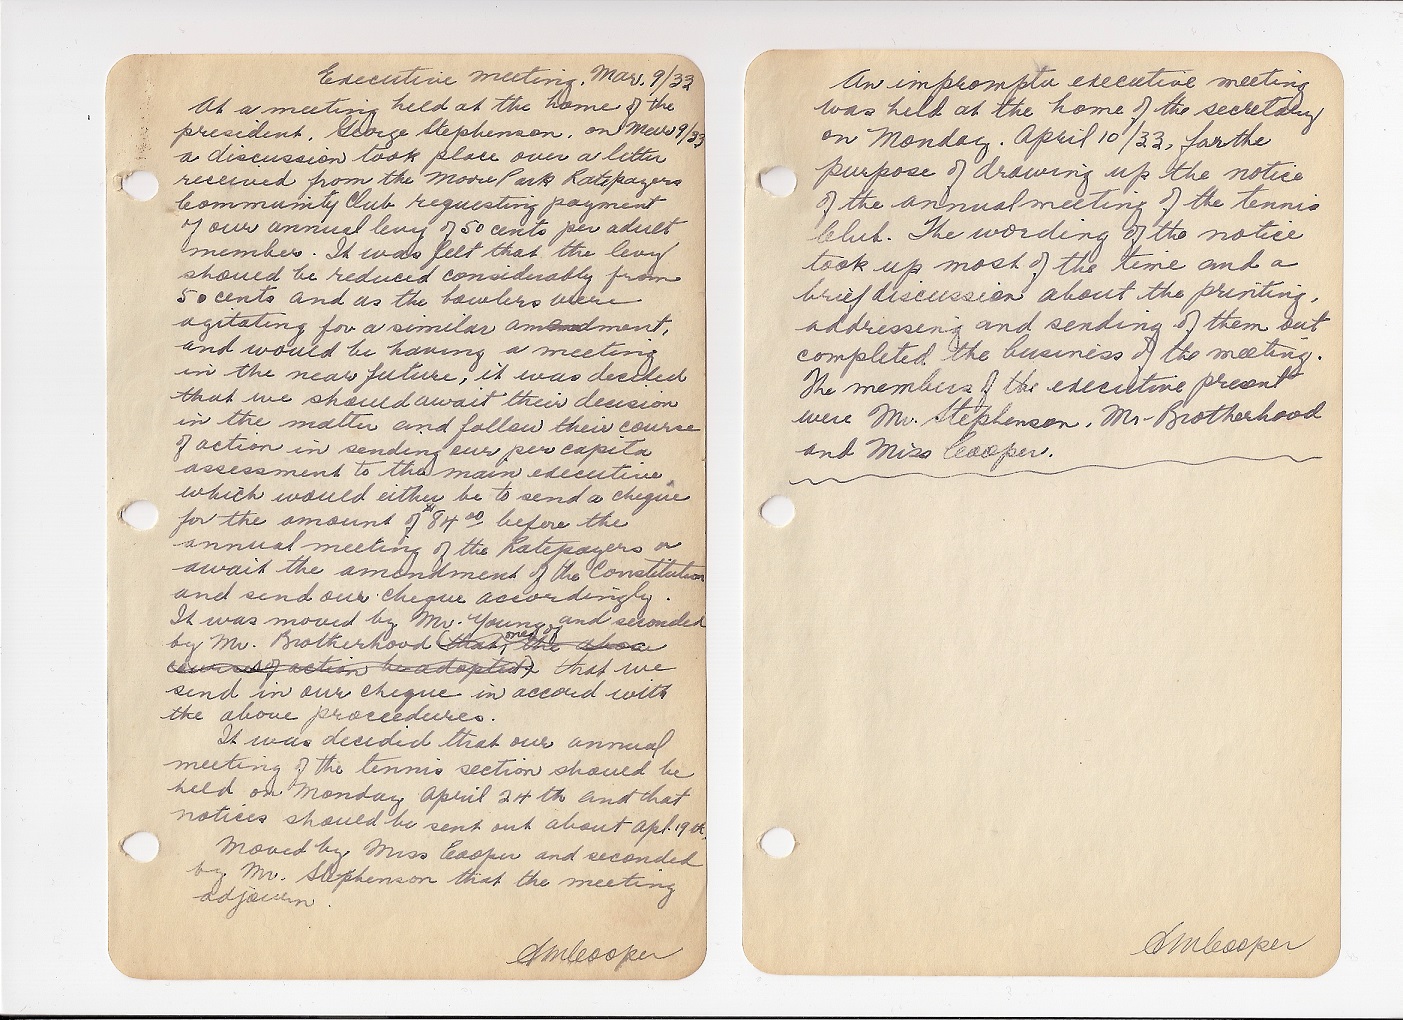 Executive meeting, Mar. 9/33
At a meeting held at the home of the
president, George Stephenson, on Mar 9/33
a discussion took place over a letter
received from the Moore Park Ratepayers
Community Club requesting payment
of our annual levy of 50 cents per adult
member. It was felt that the levy
should be reduced considerably from
50 cents and as the bowlers were
agitating for a similar amendment,
and would be having a meeting
in the near future, it was decided
that we should await their decision
in the matter and follow their course
of action in sending our per capita
assessment to the main executive
which would either be to send a cheque
for the amount of $84.00 before the
annual meeting of the Ratepayers or
await the amendment of the Constitution
and send our cheque accordingly.
It was moved by Mr. Young and seconded
by Mr. Brotherhood (that one of the above
courses of action be adopted) that we
send in our cheque in accord with
the above proceedures.
It was decided that our annual
meeting of the tennis section should be
held on Monday April 24th and that
notices should be sent out about Apl. 19th.
Moved by Miss Cooper and seconded
by Mr. Stephenson that the meeting
adjourn.
SMCooper
An impromptu executive meeting
was held at the home of the secretary
on Monday, April 10/33, for the
purpose of drawing up the notice
of the annual meeting of the tennis
Club. The wording of the notice
took up most of the time and a
brief discussion about the printing,
addressing and sending of them out
completed the business of the meeting.
The members of the executive present
were Mr. Stephenson, Mr. Brotherhood
and Miss Cooper.
SMCooper